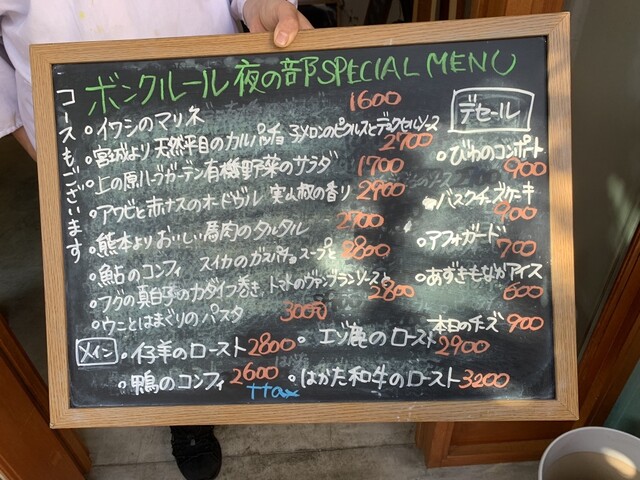 ボンクルール 夜の部 SPECIAL MENU
コースもございます
・イワシのマリネ 1600
・宮城より 天然平目のカルパッチョ 子メロンのピクルスとデュクセルソース 2700
・上の原ハーブガーデン有機野菜のサラダ 1700
・アワビと赤ナスのオードヴル 実山椒の香り 2900
・熊本より おいしい馬肉のタルタル 2700
・鮎のコンフィ スイカのガスパチョスープと 2800
・フグの真白子のカダイフ巻き トマトのヴァンブランソースと 2800
・ウニとはまぐりのパスタ 3000
メイン
・仔羊のロースト 2800
・エゾ鹿のロースト 2900
・鴨のコンフィ 2600
・はかた和牛のロースト 3200
+tax
デセール
・びわのコンポート 900
・バスクチーズケーキ 900
・アフォガード 700
・あずきもなかアイス 600
本日のチーズ 900